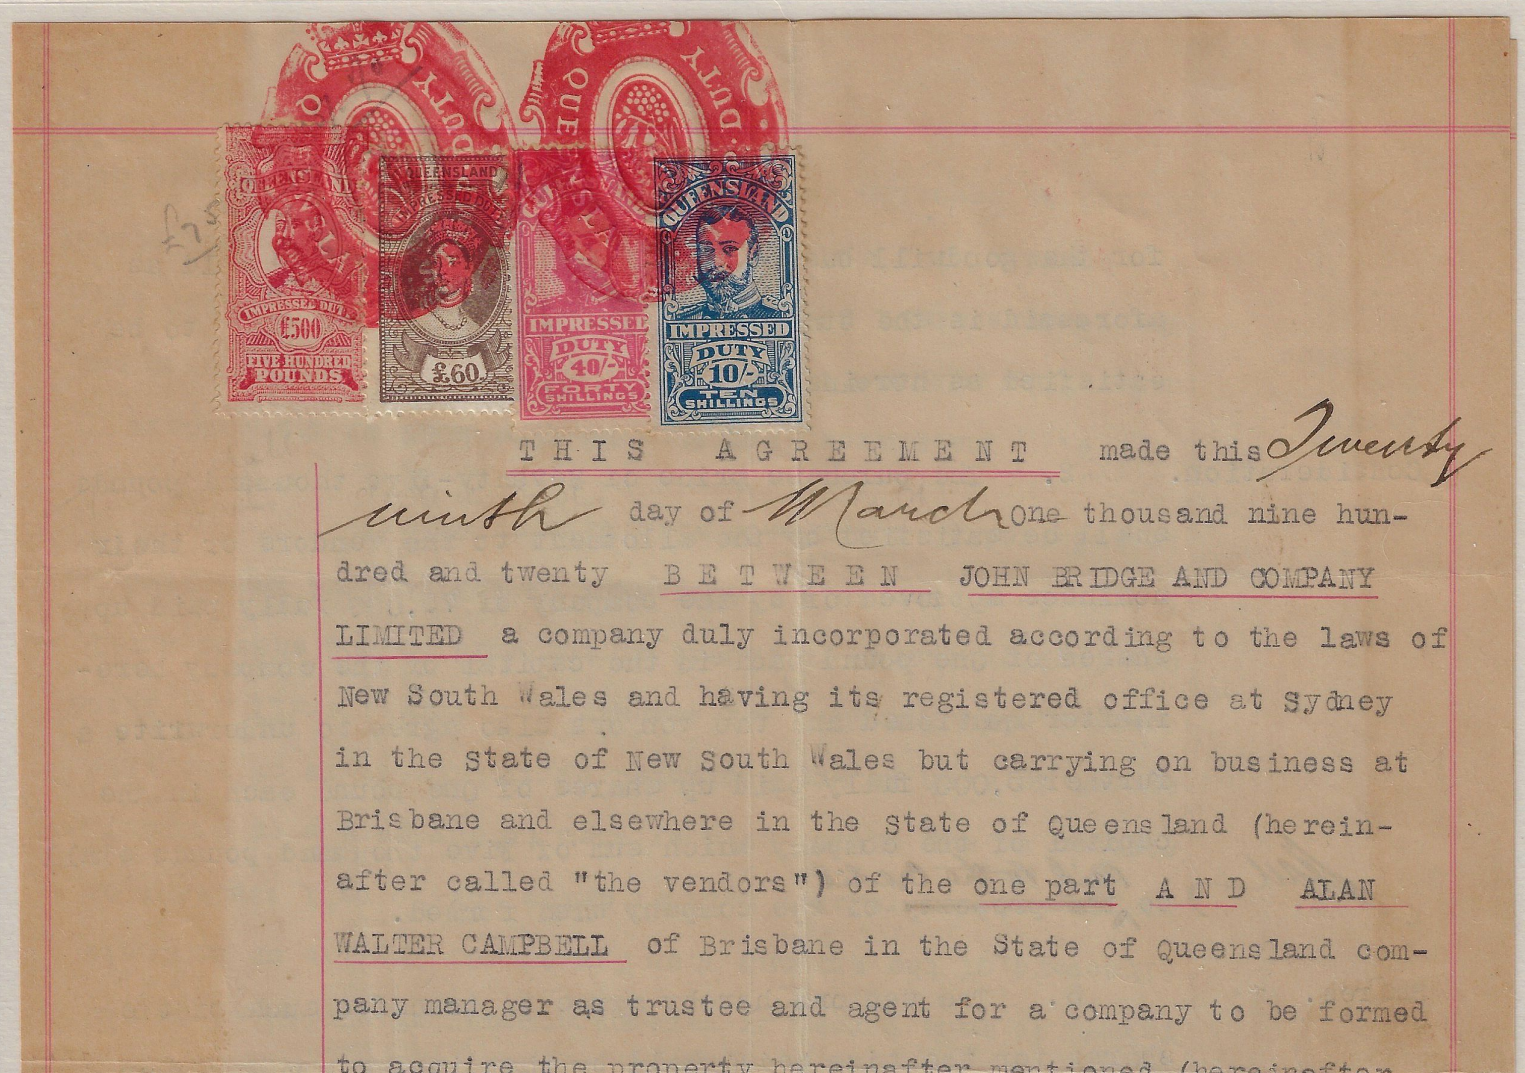 QUEENSLAND
DUTY
QUEENSLAND
DUTY
QUEENSLAND
IMPRESSED DUTY
£500
FIVE HUNDRED
POUNDS
QUEENSLAND
IMPRESSED DUTY
£60
IMPRESSED
DUTY
40/-
FORTY
SHILLINGS
QUEENSLAND
IMPRESSED
DUTY
10/-
TEN
SHILLINGS
THIS AGREEMENT made this Twenty
ninth day of March One thousand nine hun-
dred and twenty BETWEEN JOHN BRIDGE AND COMPANY
LIMITED a company duly incorporated according to the laws of
New South Wales and having its registered office at Sydney
in the State of New South Wales but carrying on business at
Brisbane and elsewhere in the State of Queensland (herein-
after called "the vendors") of the one part AND ALAN
WALTER CAMPBELL of Brisbane in the State of Queensland com-
pany manager as trustee and agent for a company to be formed
to acquire the property hereinafter mentioned (hereinafter